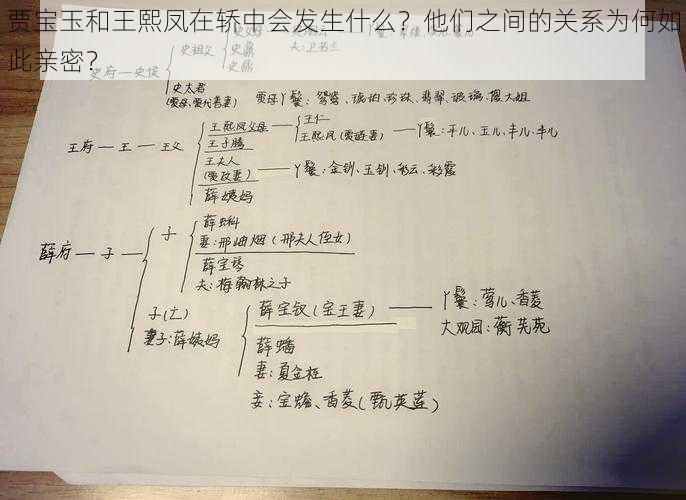 贾宝玉和王熙凤在轿中会发生什么？他们之间的关系为何如
此亲密？
史府—史侯
史祖父
史鼐
史鼎
夫:卫若兰
史太君
(贾母、贾代善妻)
贾母丫鬟:鸳鸯、琥珀、珍珠、翡翠、玻璃、傻大姐
王府—王—王父
王熙凤父母
王仁
王熙凤(贾琏妻)
丫鬟:平儿、玉儿、丰儿、丰儿
王子腾
王夫人
(贾政妻)
丫鬟:金钏、玉钏、彩云、彩霞
薛姨妈
薛府—子
子
薛蝌
妻:邢岫烟(邢夫人侄女)
薛宝琴
夫:梅翰林之子
子(亡)
妻子:薛姨妈
薛宝钗(宝玉妻)
丫鬟:莺儿、香菱
大观园:蘅芜苑
薛蟠
妻:夏金桂
妾:宝蟾、香菱(甄英莲)